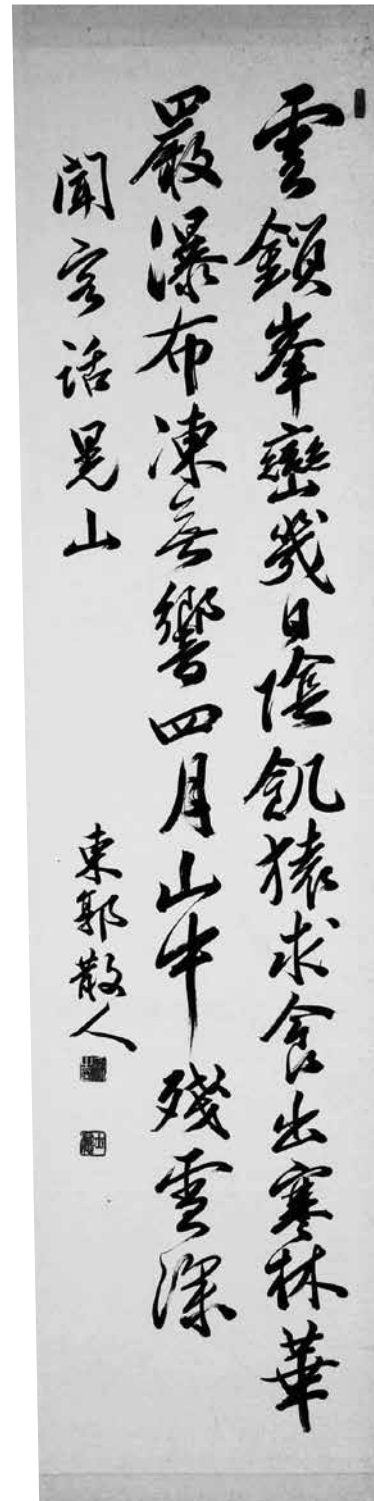 雲鎖峯巒幾日陰飢猿求食出寒林華
嚴瀑布凍無響四月山中殘雪深
聞客話晃山
東郭散人